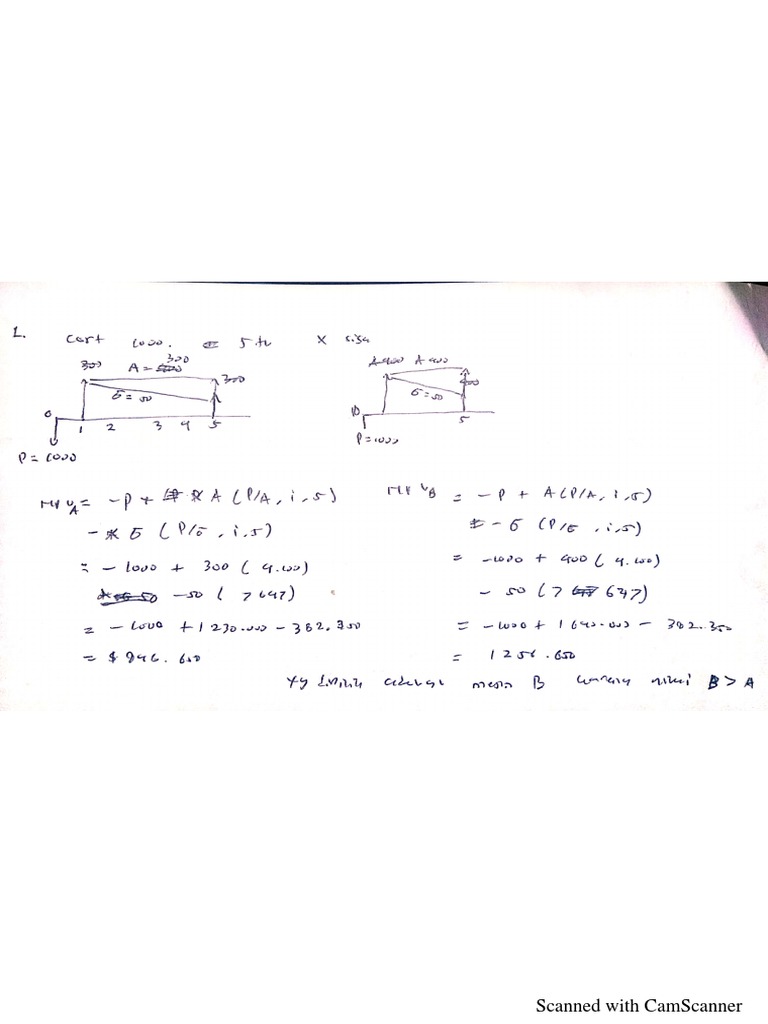 1. Cost 1000. = 5 th x sisa
300 A = 300 300
G = 50
0 1 2 3 4 5
P = 1000
A 400
G = 50
0 5
P = 1000
NPV A = -P + A (P/A, i, 5)
- G (P/G, i, 5)
= -1000 + 300 (4.100)
-50 (7 647)
= -1000 + 1 230.000 - 382.350
= $ 846.650
NPV B = -P + A (P/A, i, 5)
- G (P/G, i, 5)
= -1000 + 400 (4.100)
- 50 (7 647)
= -1000 + 1 640.000 - 382.350
= 1 256.650
yg dipilih adalah mesin B karena nilai B > A
Scanned with CamScanner